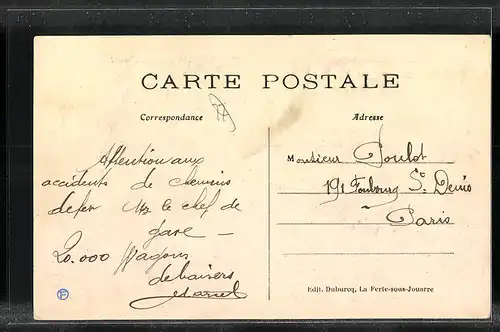 CARTE POSTALE
Correspondance
Adresse
Attention aux
accidents de chemins
de fer Mr le chef de
gare –
20.000 Wagons
de baisers
Marcel
Monsieur Poulot
191 Faubourg St. Denis
Paris
Edit. Duburcq, La Ferte-sous-Jouarre